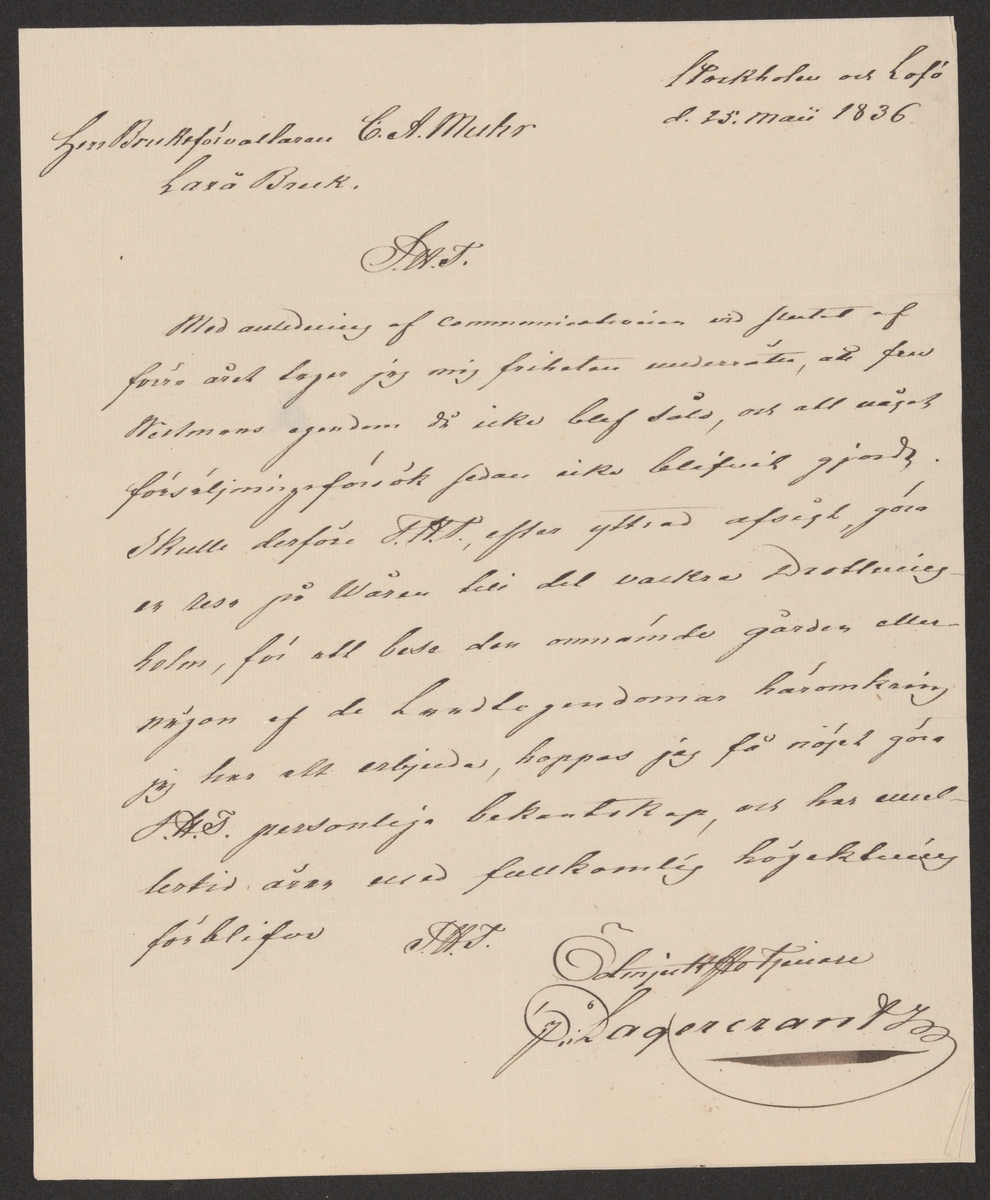 Stockholm och Lofö
d. 25. Maii 1836.
Herr Bruksförvaltaren C. A. Muhr
Laxå Bruk.
S. H. T.
Med anledning af communicationen vid slutet af
förra året tager jag mig friheten underrätta, att fru
Westmans egendom då icke blef såld, och att något
försäljningsförsök sedan icke blifvit gjordt.
Skulle derföre S.H.T., efter yttrad afsigt, göra
en resa på Våren till det vackra Drottning-
holm, för att bese den omnämde gården eller
någon af de Landtegendomar häromkring
jag har att erbjuda, hoppas jag få nöjet göra
S.H.T. personliga bekantskap, och har emel-
lertid äran med fullkomlig högaktning
förblifva S.H.T.
Ödmjukste tjenare
P. Lagercrantz